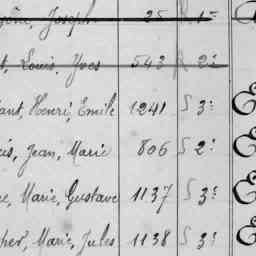 Joseph 25 1
Louis, Yves 543 2
ant, Henri, Emile 1241 S 3
is, Jean, Marie 806 S 2
e, Marie, Gustave 1137 S 3
her, Marie, Jules 1138 S 3